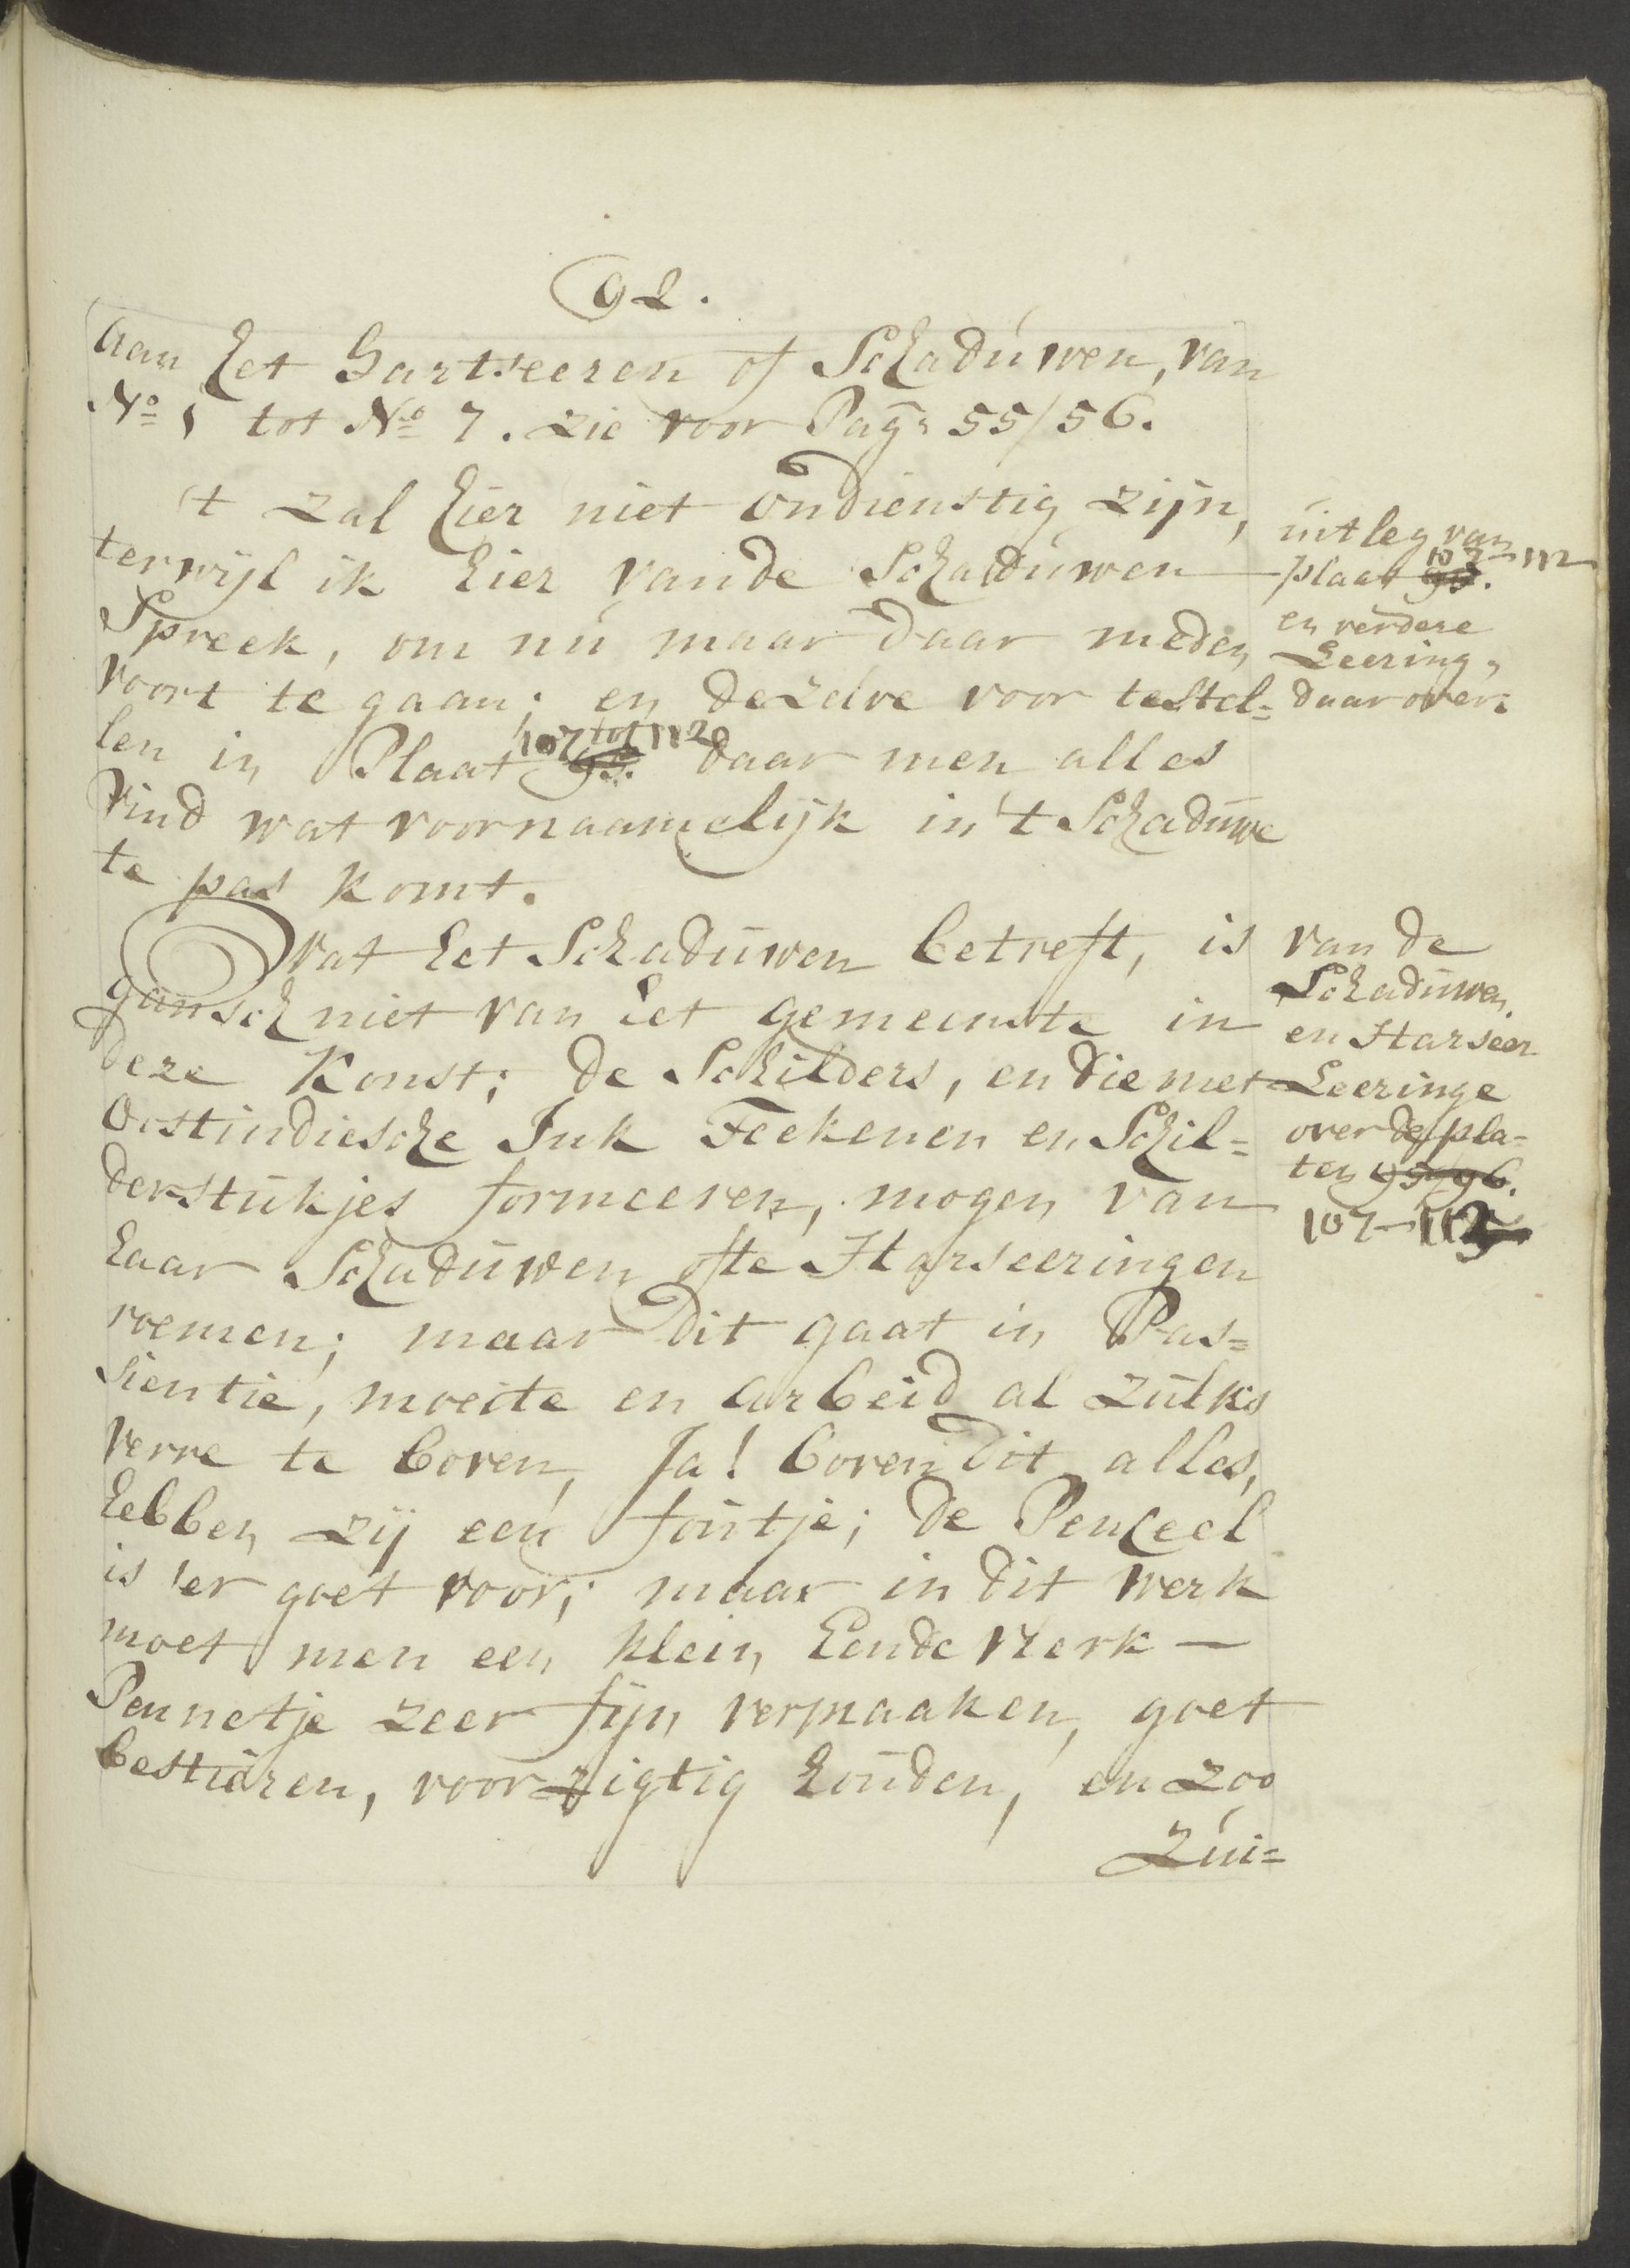 92.
aan het hartseeren of Schaduwen, van
No 1 tot No 7. zie voor Pag: 55/56.
't zal hier niet ondienstig zijn,
terwijl ik hier van de Schaduwen
Spreek, om nu maar daar meden
voort te gaan; en dezelve voor testel=
len in Plaat 107 tot 112 95. daar men alles
vind wat voornaamelijk in 't Schaduwe
te pas komt.
Wat het Schaduwen betreft, is
gansch niet van het gemeenste in
deze Konst; de Schilders, en die met
Oostindiesche Ink Teekenen en Schil=
derstukjes formeeren, mogen van
haar Schaduwen ofte Harseeringen
roemen; maar dit gaat in Pas=
sientie, moeite en arbeid al zulks
verre te boven, Ja! boven dit alles,
hebben zij een foutje; de Penceel
is 'er goet voor; maar in dit werk
moet men een klein Eende Vlerk —
Pennetje zeer fijn vermaaken, goet
bestieren, voorzigtig houden, en zoo
Zui=
uitleg van
plaat 95. 107–112
en verdere
Leering,
daar over.
van de
Schaduwen
en Harseer
Leeringe
over de pla=
ten 95/96.
107–112